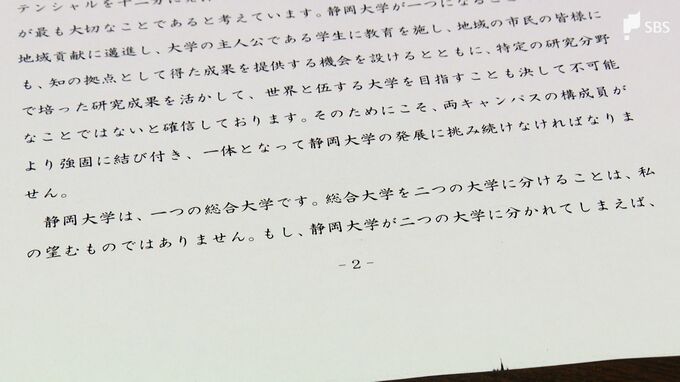 テンシャルを十二分に
が最も大切なことであると考えています。静岡大学が一つになること
地域貢献に邁進し、大学の主人公である学生に教育を施し、地域の市民の皆様に
も、知の拠点として得た成果を提供する機会を設けるとともに、特定の研究分野
で培った研究成果を活かして、世界と伍する大学を目指すことも決して不可能
なことではないと確信しております。そのためにこそ、両キャンパスの構成員が
より強固に結び付き、一体となって静岡大学の発展に挑み続けなければなりま
せん。
静岡大学は、一つの総合大学です。総合大学を二つの大学に分けることは、私
の望むものではありません。もし、静岡大学が二つの大学に分かれてしまえば、
- 2 -
SBS